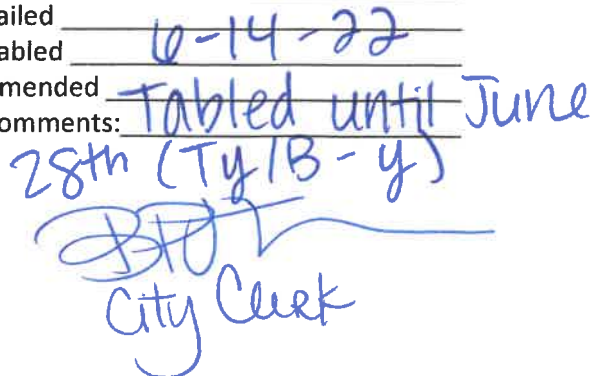 ailed
abled 6-14-22
mended
omments: Tabled until June
28th (Ty/B - y)
City Clerk